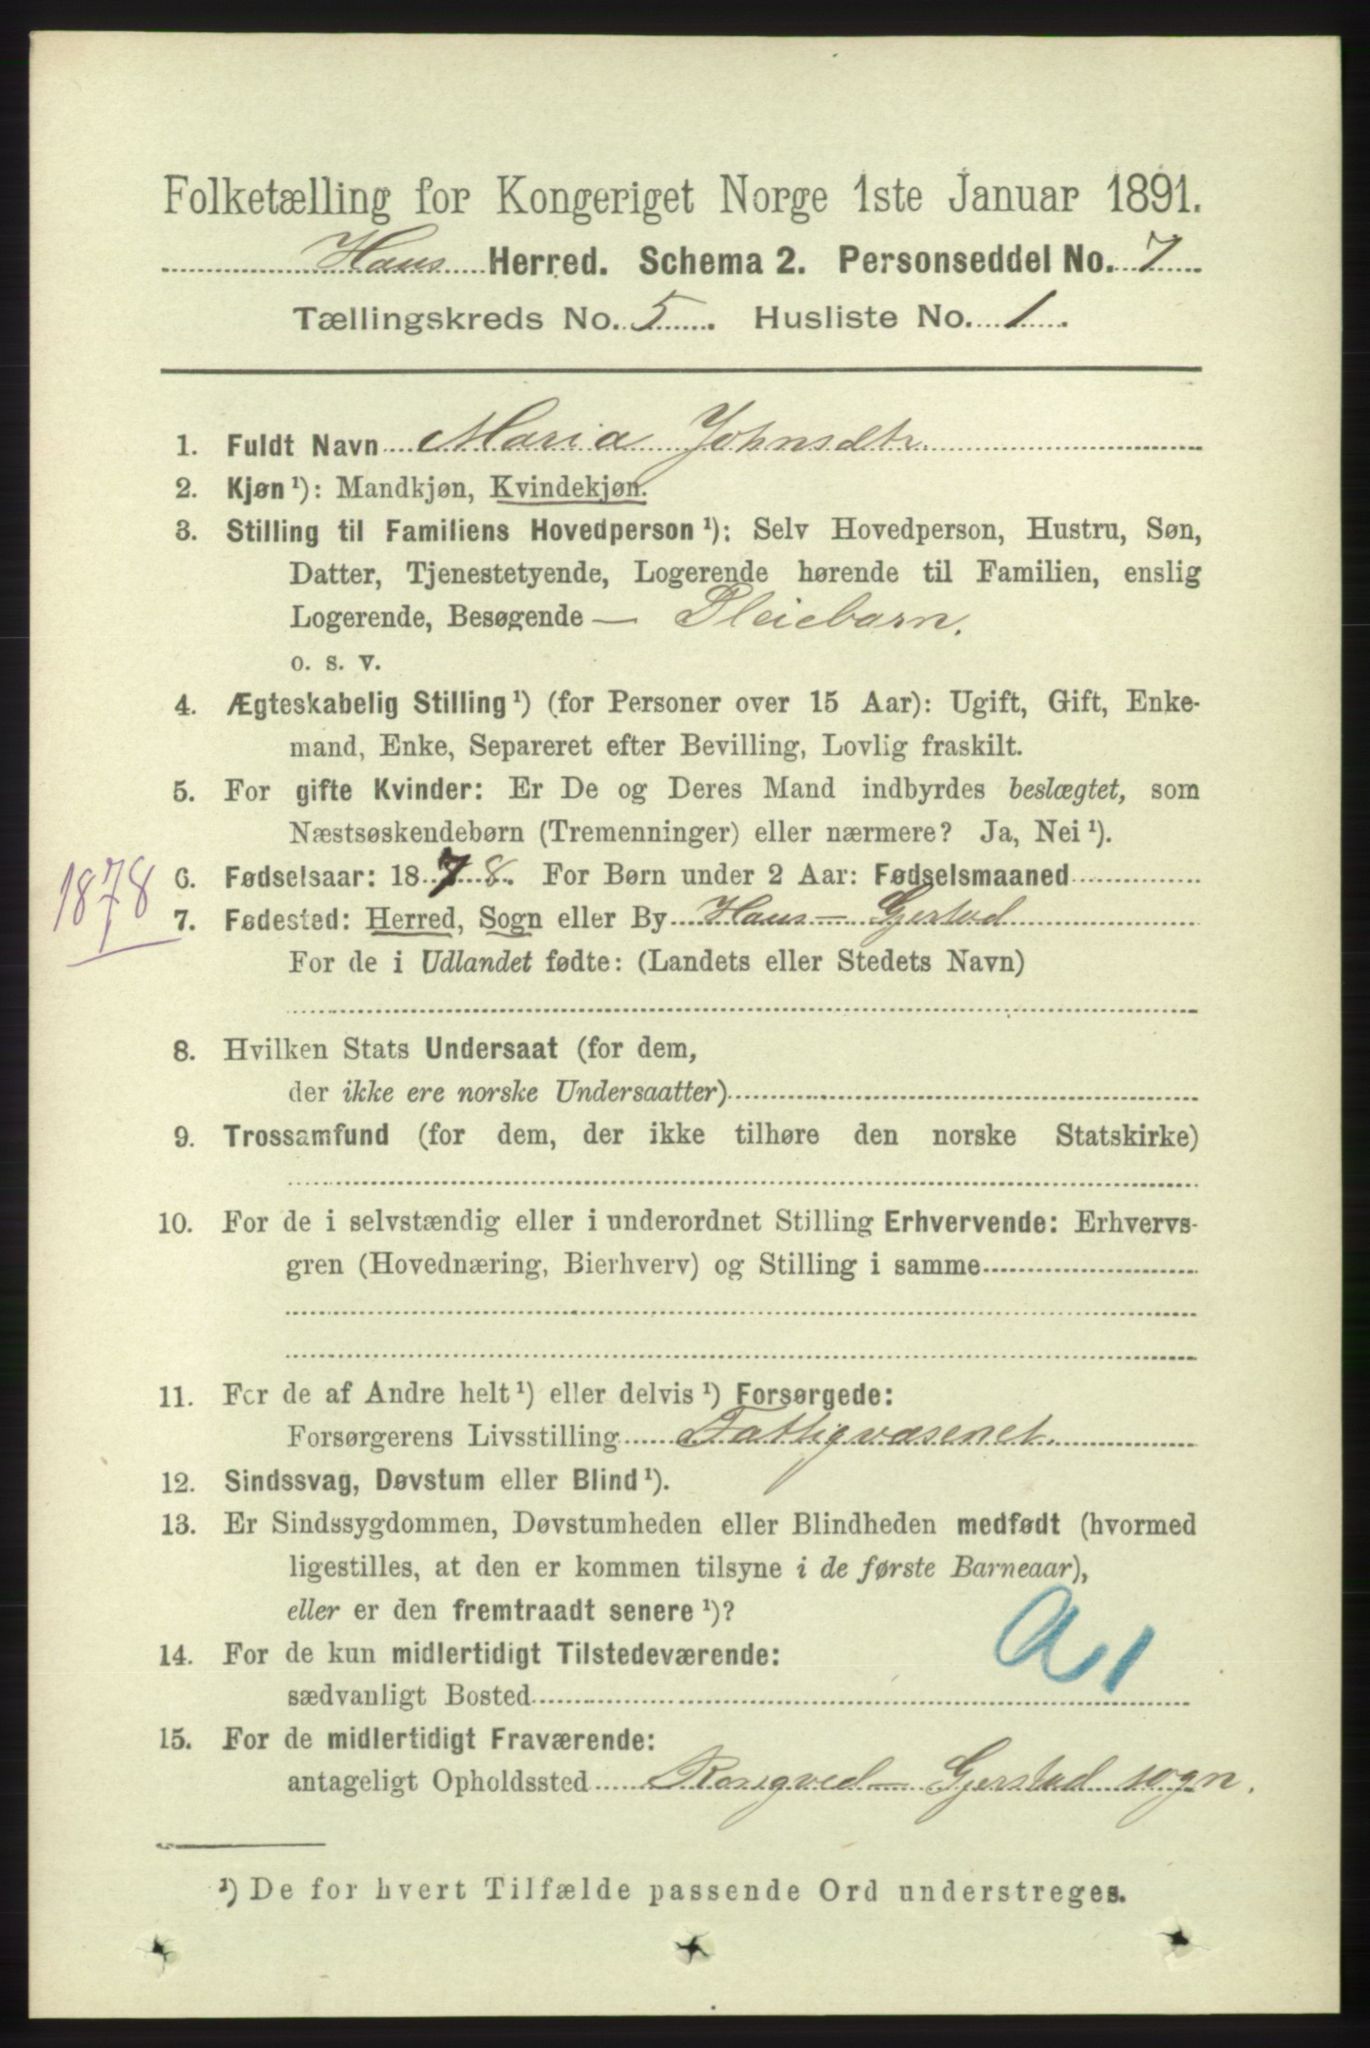 Folketælling for Kongeriget Norge 1ste Januar 1891.
Haus Herred. Schema 2. Personseddel No. 7
Tællingskreds No. 5. Husliste No. 1.
1. Fuldt Navn Maria Johnsdtr.
2. Kjøn¹): Mandkjøn, Kvindekjøn.
3. Stilling til Familiens Hovedperson¹): Selv Hovedperson, Hustru, Søn,
Datter, Tjenestetyende, Logerende hørende til Familien, enslig
Logerende, Besøgende — Pleiebarn.
o. s. v.
4. Ægteskabelig Stilling¹) (for Personer over 15 Aar): Ugift, Gift, Enke-
mand, Enke, Separeret efter Bevilling, Lovlig fraskilt.
5. For gifte Kvinder: Er De og Deres Mand indbyrdes beslægtet, som
Næstsøskendebørn (Tremenninger) eller nærmere? Ja, Nei¹).
1878
6. Fødselsaar: 1878. For Børn under 2 Aar: Fødselsmaaned
7. Fødested: Herred, Sogn eller By Haus — Gjerstad
For de i Udlandet fødte: (Landets eller Stedets Navn)
8. Hvilken Stats Undersaat (for dem,
der ikke ere norske Undersaatter)
9. Trossamfund (for dem, der ikke tilhøre den norske Statskirke)
10. For de i selvstændig eller i underordnet Stilling Erhvervende: Erhvervs-
gren (Hovednæring, Bierhverv) og Stilling i samme
11. For de af Andre helt¹) eller delvis¹) Forsørgede:
Forsørgerens Livsstilling Fattigvæsenet.
12. Sindssvag, Døvstum eller Blind¹).
13. Er Sindssygdommen, Døvstumheden eller Blindheden medfødt (hvormed
ligestilles, at den er kommen tilsyne i de første Barneaar),
eller er den fremtraadt senere¹)?
14. For de kun midlertidigt Tilstedeværende:
sædvanligt Bosted
15. For de midlertidigt Fraværende:
antageligt Opholdssted — Gjerstad sogn.
¹) De for hvert Tilfælde passende Ord understreges.